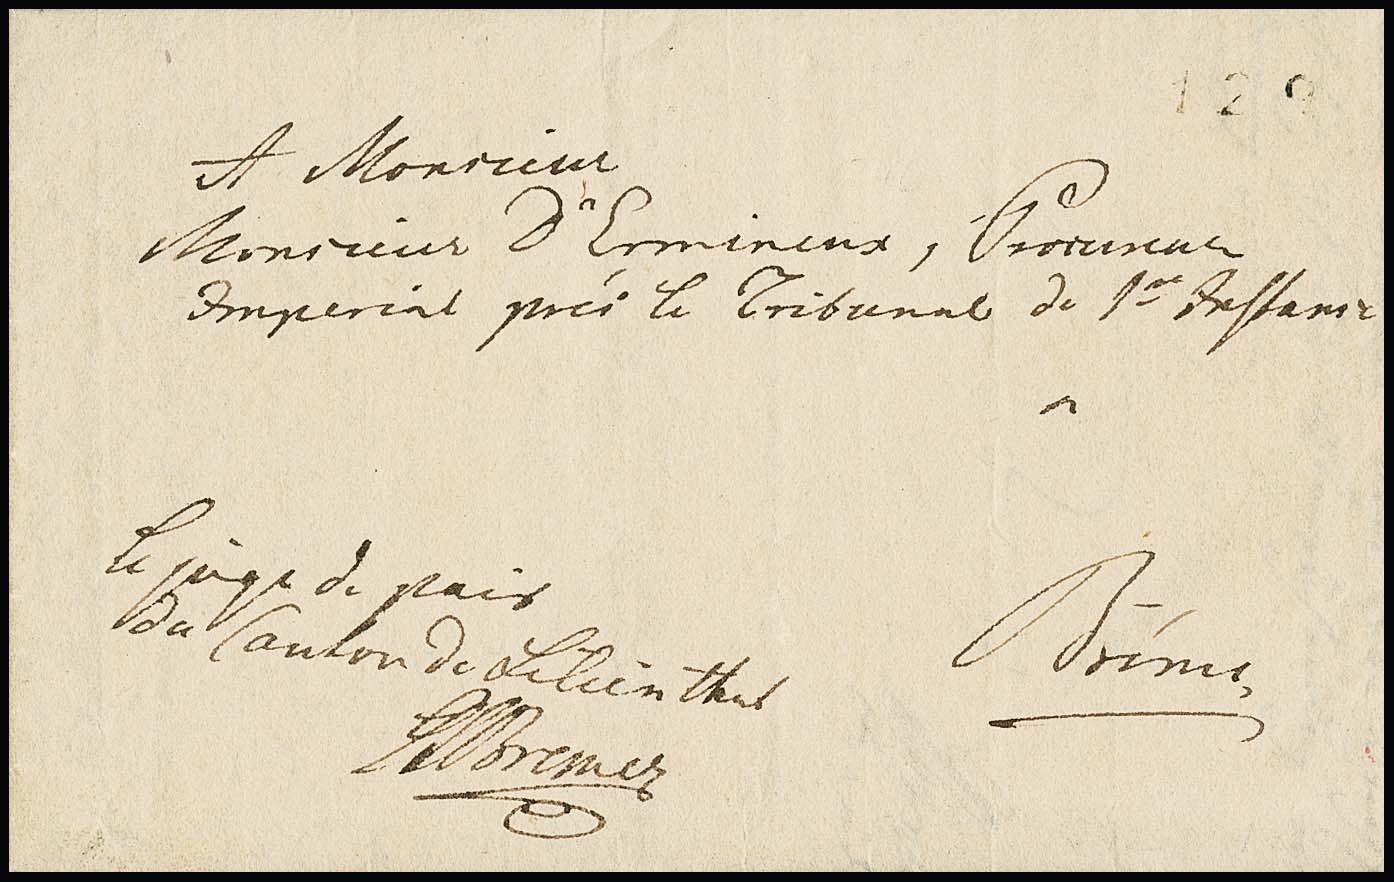 129
A Monsieur
Monsieur D'Ermineux, Procureur
Imperial prés le Tribunal de 1re Instance
à
Le juge de paix
du Canton de Lilienthal
Bréme,
Bremer